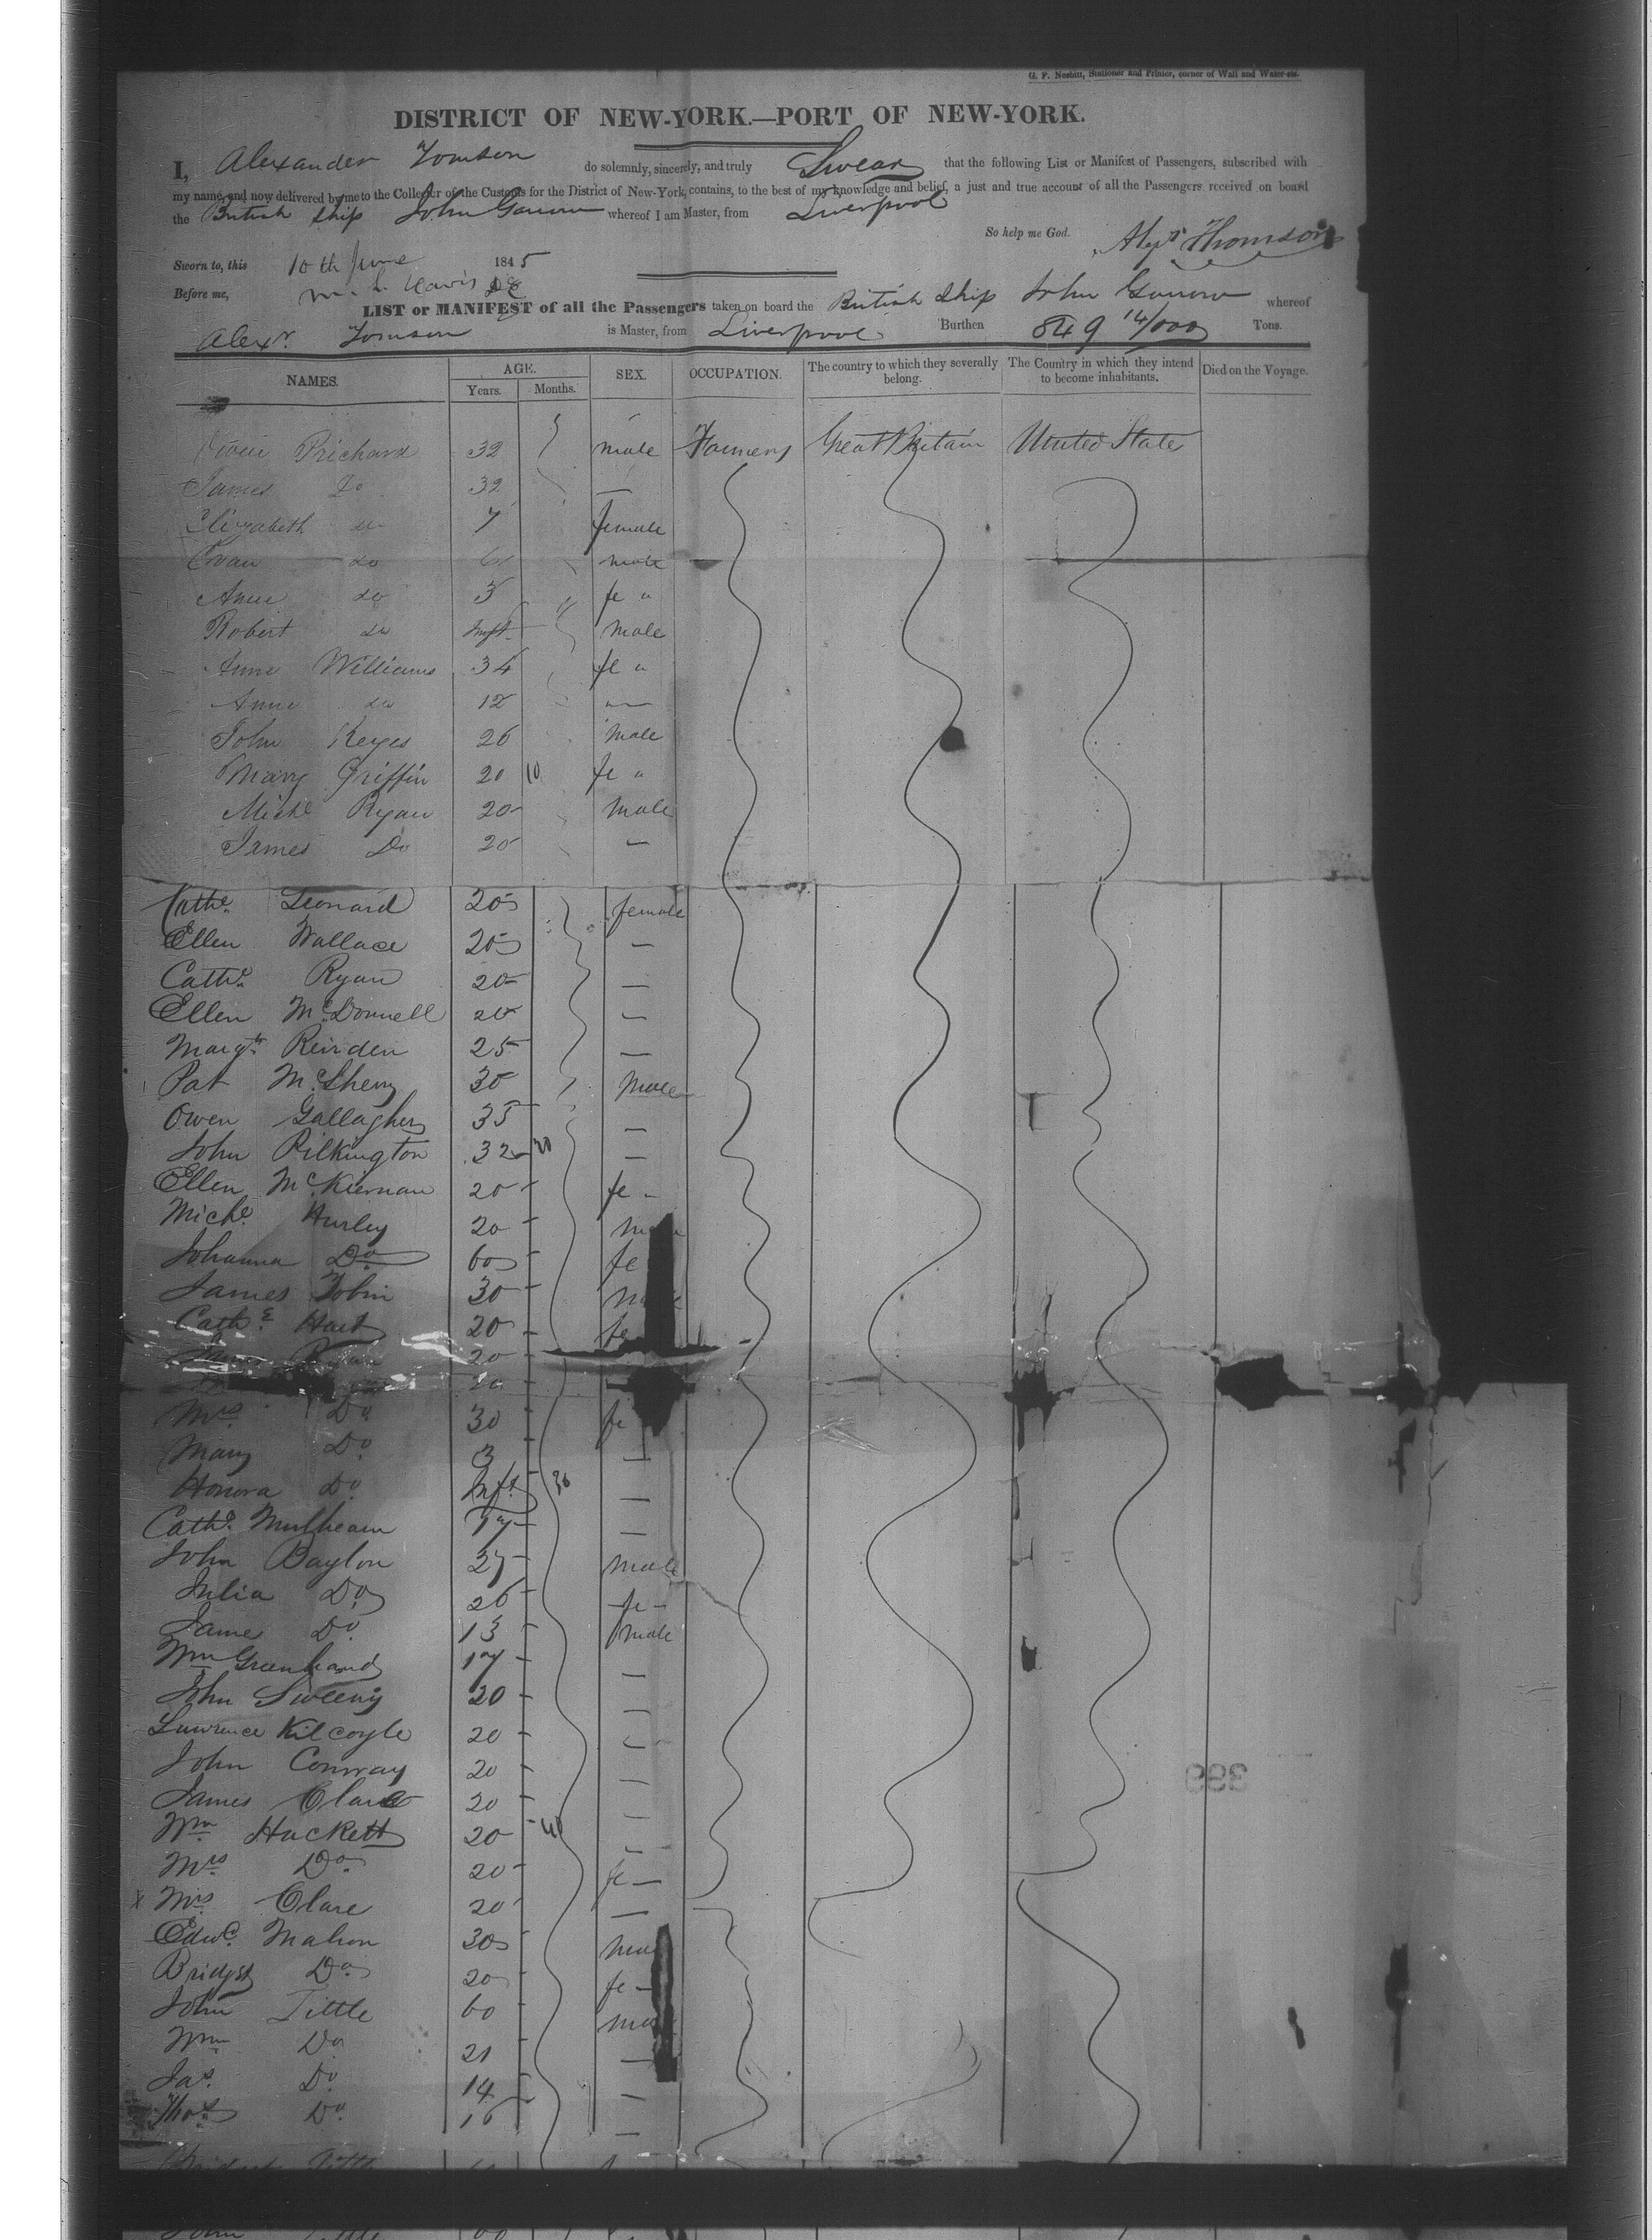 G. F. Nesbitt, Stationer and Printer, corner of Wall and Water-sts.
DISTRICT OF NEW-YORK.—PORT OF NEW-YORK.
I, Alexander Tomson do solemnly, sincerely, and truly Swear that the following List or Manifest of Passengers, subscribed with
my name, and now delivered by me to the Collector of the Customs for the District of New-York, contains, to the best of my knowledge and belief, a just and true account of all the Passengers received on board
the British Ship John Garrow whereof I am Master, from Liverpool
So help me God. Alexr Thomson
Sworn to, this 10th June 1845
Before me,
LIST or MANIFEST of all the Passengers taken on board the British Ship John Garrow whereof
Alexr. Tomson is Master, from Liverpool Burthen 849 Tons.
NAMES. AGE. Years. Months. SEX. OCCUPATION. The country to which they severally belong. The Country in which they intend to become inhabitants. Died on the Voyage.
Owen Prichard 32 male Farmers Great Britain United State
James Do 32 —
Elizabeth do 7 female
Evan do 6 male
Anne do 3 fe "
Robert do Inft male
Anne Williams 34 fe "
Anne do 12 "
John Keyes 26 male
Mary Griffin 20 10 fe "
Michl Ryan 20 male
James Do 20 —
Cathe. Leonard 20 female
Ellen Wallace 20 —
Cathe. Ryan 20 —
Ellen McDonnell 20 —
Margt. Reirden 25 —
Pat 30 Male
Owen Gallagher 35 —
John Pilkington 32 20 —
Ellen McKiernan 20 fe -
Michl. Hurley 20
Johanna Do 60 fe
James Tobin 30
Cathe. Hart 20 fe
20
20
Mrs Do 30 fe
Mary Do 3 —
Honora Do Inft 30 —
Cathe. Mulheam 17 —
John Baylon 27 male
Julia Do 26 fe -
James Do 13 male
Wm 17 —
John Sweeny 20 —
Lawrence Kilcoyle 20 —
John Conway 20 —
James Clare 20 —
Wm Hackett 20 40 —
Mrs Do 20 fe —
x Mrs Clare 20 —
Edwd. Mahon 30
Bridget Do 20 fe -
John Tittle 60
Wm Do 21 —
Jas. Do 14 —
Thos Do 16 —
Bridget Tittle
399